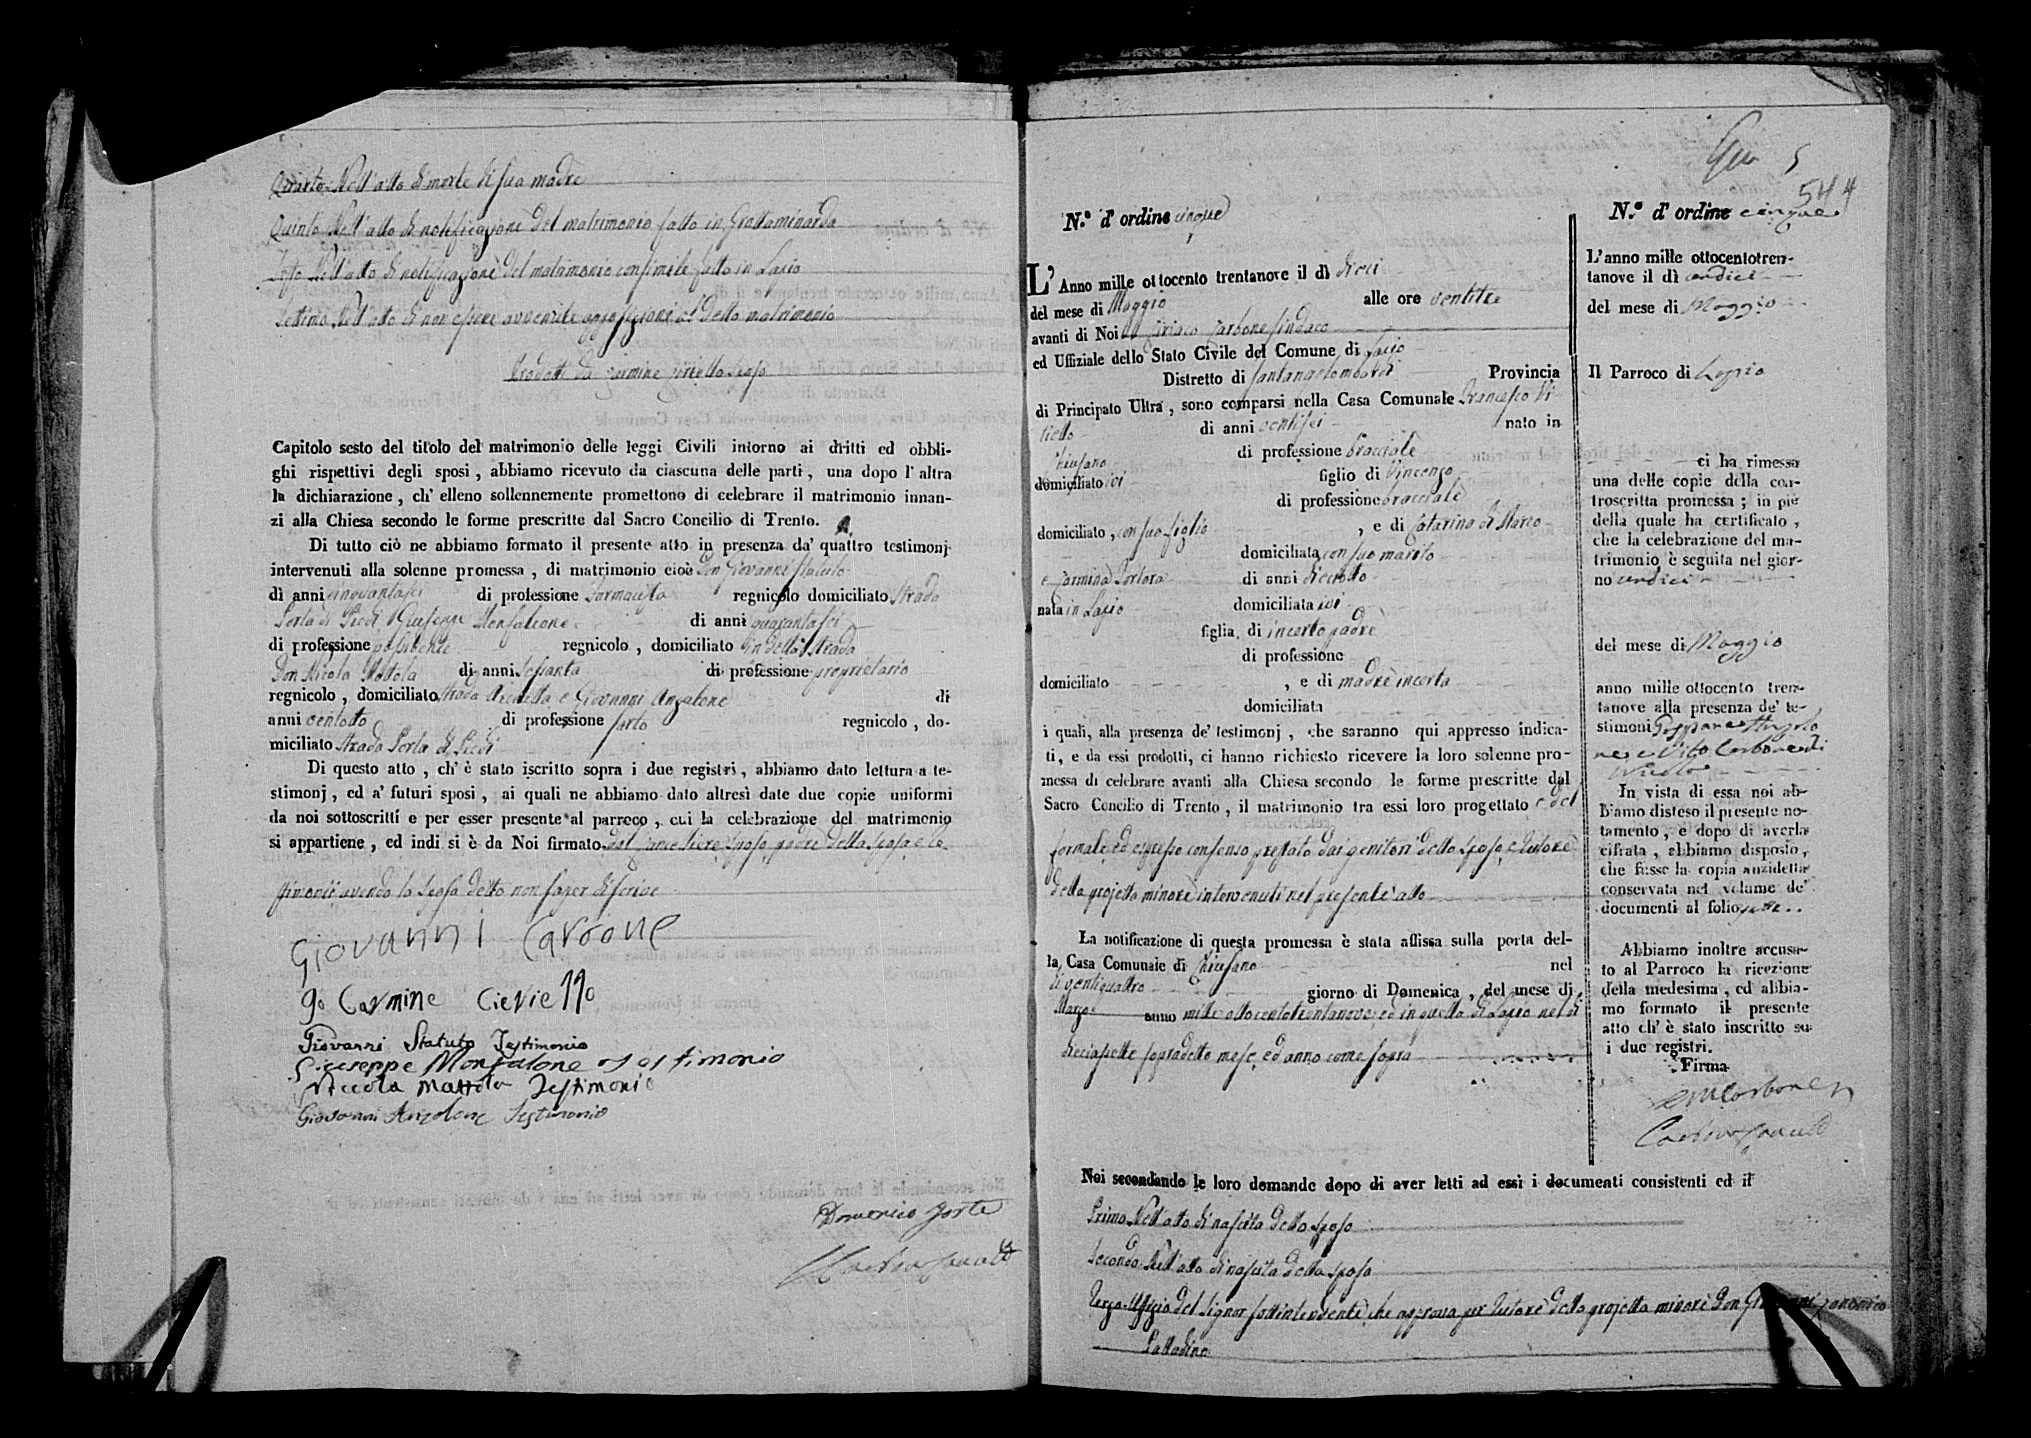 Quarto Nell'atto di morte di sua madre
Quinto Nell'atto di notificazione del matrimonio fatto in Grottaminarda
Sesto Nell'atto di notificazione del matrimonio consimile fatto in Lapio
Settimo Nell'atto di non essere avvenuta opposizione al detto matrimonio
Prodotti da Carmine sposo
Capitolo sesto del titolo del matrimonio delle leggi Civili intorno ai dritti ed obbli-
ghi rispettivi degli sposi, abbiamo ricevuto da ciascuna delle parti, una dopo l'altra
la dichiarazione, ch'elleno sollennemente promettono di celebrare il matrimonio innan-
zi alla Chiesa secondo le forme prescritte dal Sacro Concilio di Trento.
Di tutto ciò ne abbiamo formato il presente atto in presenza da' quattro testimonj
intervenuti alla solenne promessa, di matrimonio cioè Don Giovanni Statuto
di anni cinquantasei di professione Farmacista regnicolo domiciliato Strada
Porta di Piedi Giuseppe Monfalcone di anni quarantasei
di professione possidente regnicolo, domiciliato in detta Strada
Don Nicola Mottola di anni sessanta di professione proprietario
regnicolo, domiciliato Strada e Giovanni Anzalone di
anni ventotto di professione sarto regnicolo, do-
miciliato Strada Porta di Piedi
Di questo atto, ch'è stato iscritto sopra i due registri, abbiamo dato lettura a te-
stimonj, ed a' futuri sposi, ai quali ne abbiamo dato altresì date due copie uniformi
da noi sottoscritti e per esser presente al parroco, cui la celebrazione del matrimonio
si appartiene, ed indi si è da Noi firmato dal Cancelliere sposo padre della sposa e te
stimonii avendo la sposa detto non saper scrivere
Giovanni Carbone
Io Carmine
Giovanni Statuto Testimonio
Giuseppe Monfalcone testimonio
Niccola Mattola Testimonio
Giovanni Anzalone Testimonio
Domenico Forte
5
544
N.º d'ordine cinque
L'Anno mille ottocento trentanove il dì dieci
del mese di Maggio alle ore ventitre
avanti di Noi Ciriaco Carbone Sindaco
ed Uffiziale dello Stato Civile del Comune di Lapio
Distretto di Santangelombardi Provincia
di Principato Ultra, sono comparsi nella Casa Comunale Francesco Vi
tiello di anni ventisei nato in
Chiusano di professione bracciale
domiciliato ivi figlio di Vincenzo
di professione bracciale
domiciliato, con suo figlio, e di Catarina di Marco
domiciliata con suo marito
e Carmina Tortora di anni diciotto
nata in Lapio domiciliata ivi
figlia di incerto padre
di professione
domiciliato, e di madre incerta
domiciliata
i quali, alla presenza de' testimonj, che saranno qui appresso indica-
ti, e da essi prodotti, ci hanno richiesto ricevere la loro solenne pro-
messa di celebrare avanti alla Chiesa secondo le forme prescritte dal
Sacro Concilio di Trento, il matrimonio tra essi loro progettato e del
formale ed espresso consenso prestato dai genitori dello sposo e tutore
della projetta minore intervenuti nel presente atto
La notificazione di questa promessa è stata affissa sulla porta del-
la Casa Comunale di Chiusano nel
dì ventiquattro giorno di Domenica, del mese di
Marzo anno mille ottocentotrentanove, ed in quella di Lapio nel dì
diciasette sopradetto mese, ed anno come sopra
Noi secondando le loro domande dopo di aver letti ad essi i documenti consistenti ed il
Primo Nell'atto di nascita dello sposo
Secondo Nell'atto di nascita della sposa
Terzo Uffizio del Signor Sottintendente, che approva per tutore della projetta minore Don
N.º d'ordine cinque
L'anno mille ottocentotren-
tanove il dì undici
del mese di Maggio
Il Parroco di Lapio
ci ha rimessa
una delle copie della con-
troscritta promessa; in piè
della quale ha certificato,
che la celebrazione del ma-
trimonio è seguita nel gior-
no undici
del mese di Maggio
anno mille ottocento tren-
tanove alla presenza de' te-
stimoni Anzalo
ne e Vito Carbone di
In vista di essa noi ab-
biamo disteso il presente no-
tamento, e dopo di averla
cifrata, abbiamo disposto,
che fusse la copia anzidetta
conservata nel volume de'
documenti al folio
Abbiamo inoltre accusa-
to al Parroco la ricezione
della medesima, ed abbia-
mo formato il presente
atto ch'è stato inscritto su
i due registri.
Firma